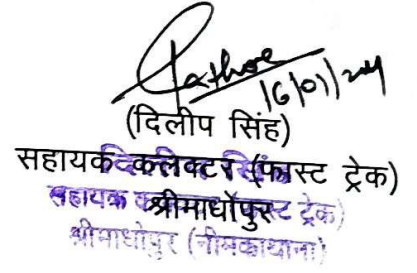 Rathore
16/01/24
(दिलीप सिंह)
सहायक कलेक्टर (फास्ट ट्रेक)
श्रीमाधोपुर
सहायक क ट ट्रेक)
श्रीमाधोपुर (नीमकाथाना)